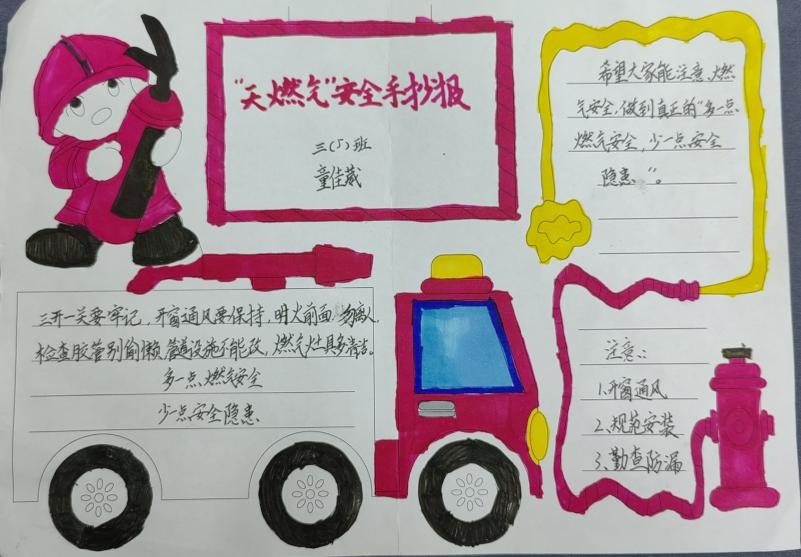 "天燃气"安全手抄报
三(5)班
童佳葳
希望大家能注意燃
气安全,做到真正的"多一点
燃气安全,少一点安全
隐患"。
三开一关要牢记,开窗通风要保持,明火前面勿离人
检查胶管别偷懒,管道设施不能改,燃气灶具多清洁。
多一点燃气安全
少一点安全隐患
注意:
1.开窗通风
2.规范安装
3.勤查防漏